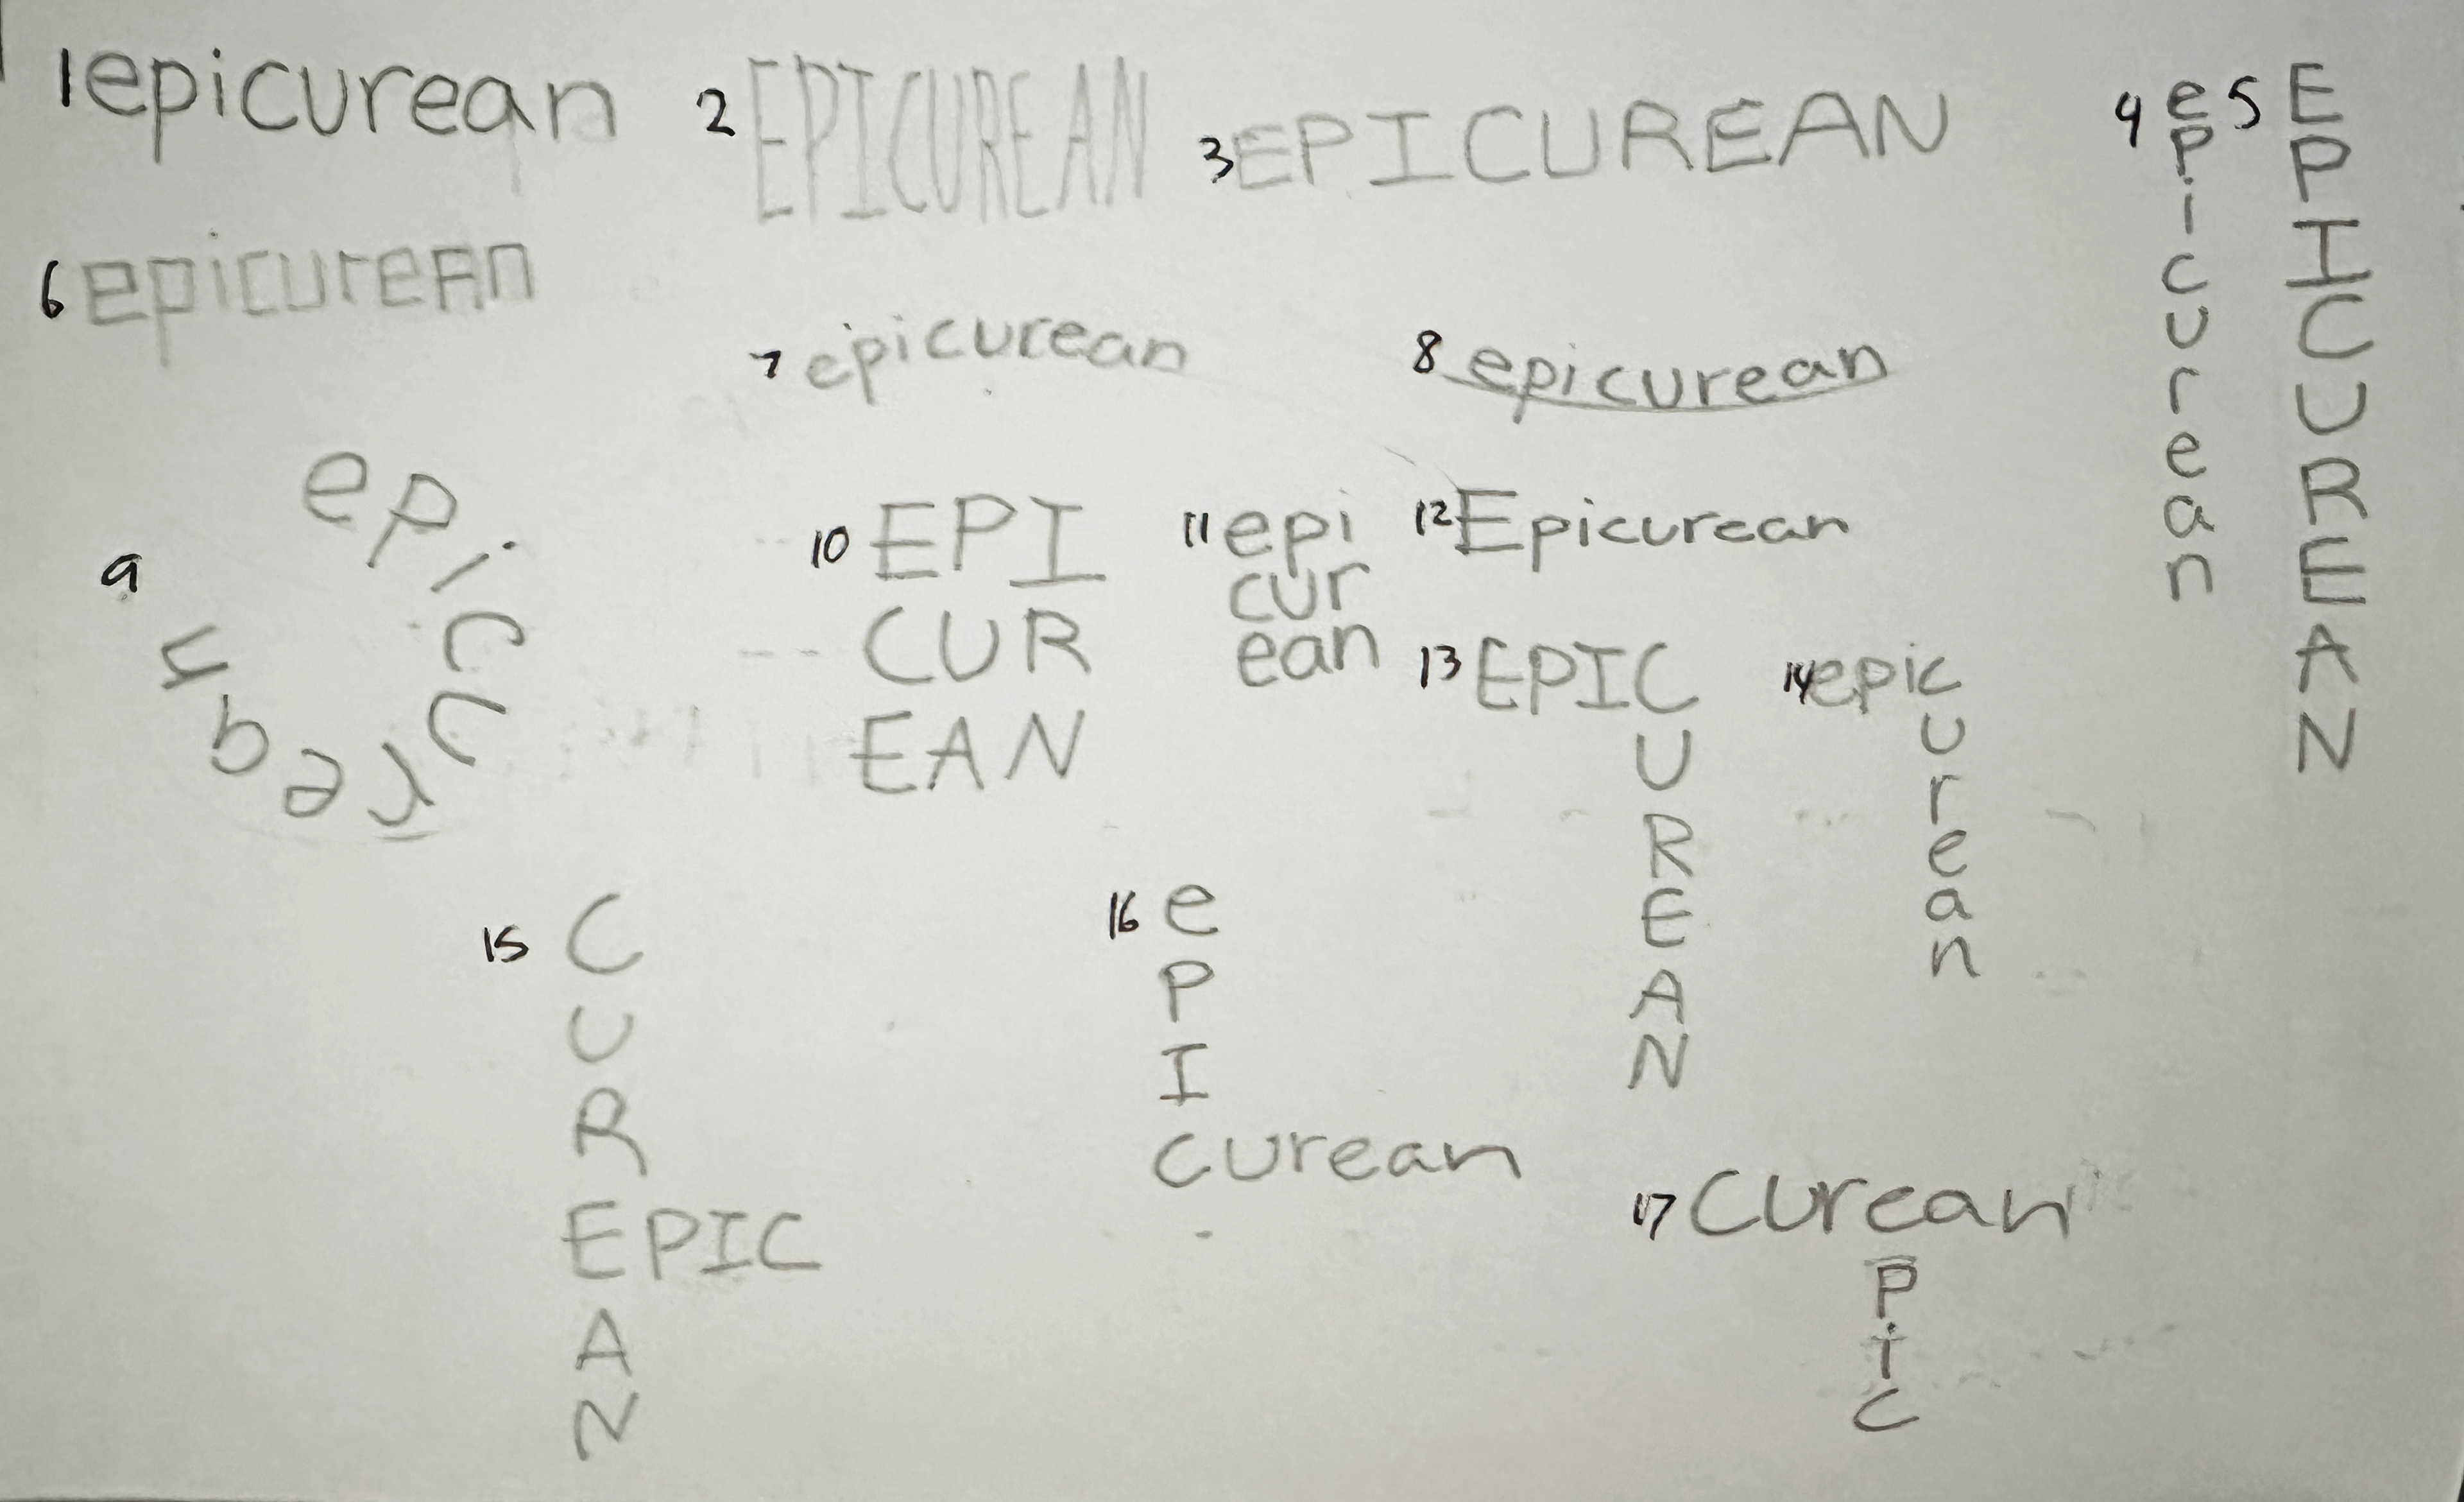 1 epicurean
2 EPICUREAN
3 EPICUREAN
4 epicurean
5 EPICUREAN
6 epicureAn
7 epicurean
8 epicurean
9 epicurean
10 EPI
CUR
EAN
11 epi
cur
ean
12 Epicurean
13 EPIC
U
R
E
A
N
14 epic
u
r
e
a
n
15 C
U
R
EPIC
A
N
16 e
P
I
curean
17 curean
P
i
c